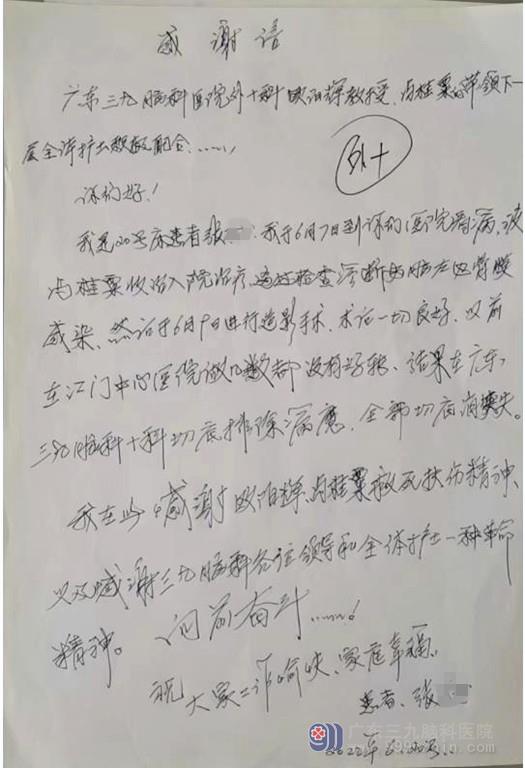 感谢信
广东三九脑科医院外十科欧阳辉教授、冯桂栗 领下一
层全体护士 配合……
你们好！
外十
我是20号床患者张 我于6月7日到你们医院看病，被
冯桂栗收治入院治疗，通过检查诊断为脑左 骨膜
感染，然后于6月9日进行造影手术，术后一切良好，以前
在江门中心医院做几 都没有好转，结果在广东
三九脑科十科切底排除病魔，全部切底消失。
我在此感谢欧阳辉、冯桂栗救死扶伤精神、
以及感谢三九脑科各位领导和全体护士一种革命
精神。向前奋斗……！
祝大家工作愉快、家庭幸福。
患者：张
2022年6.
广东三九脑科医院
999brain.com